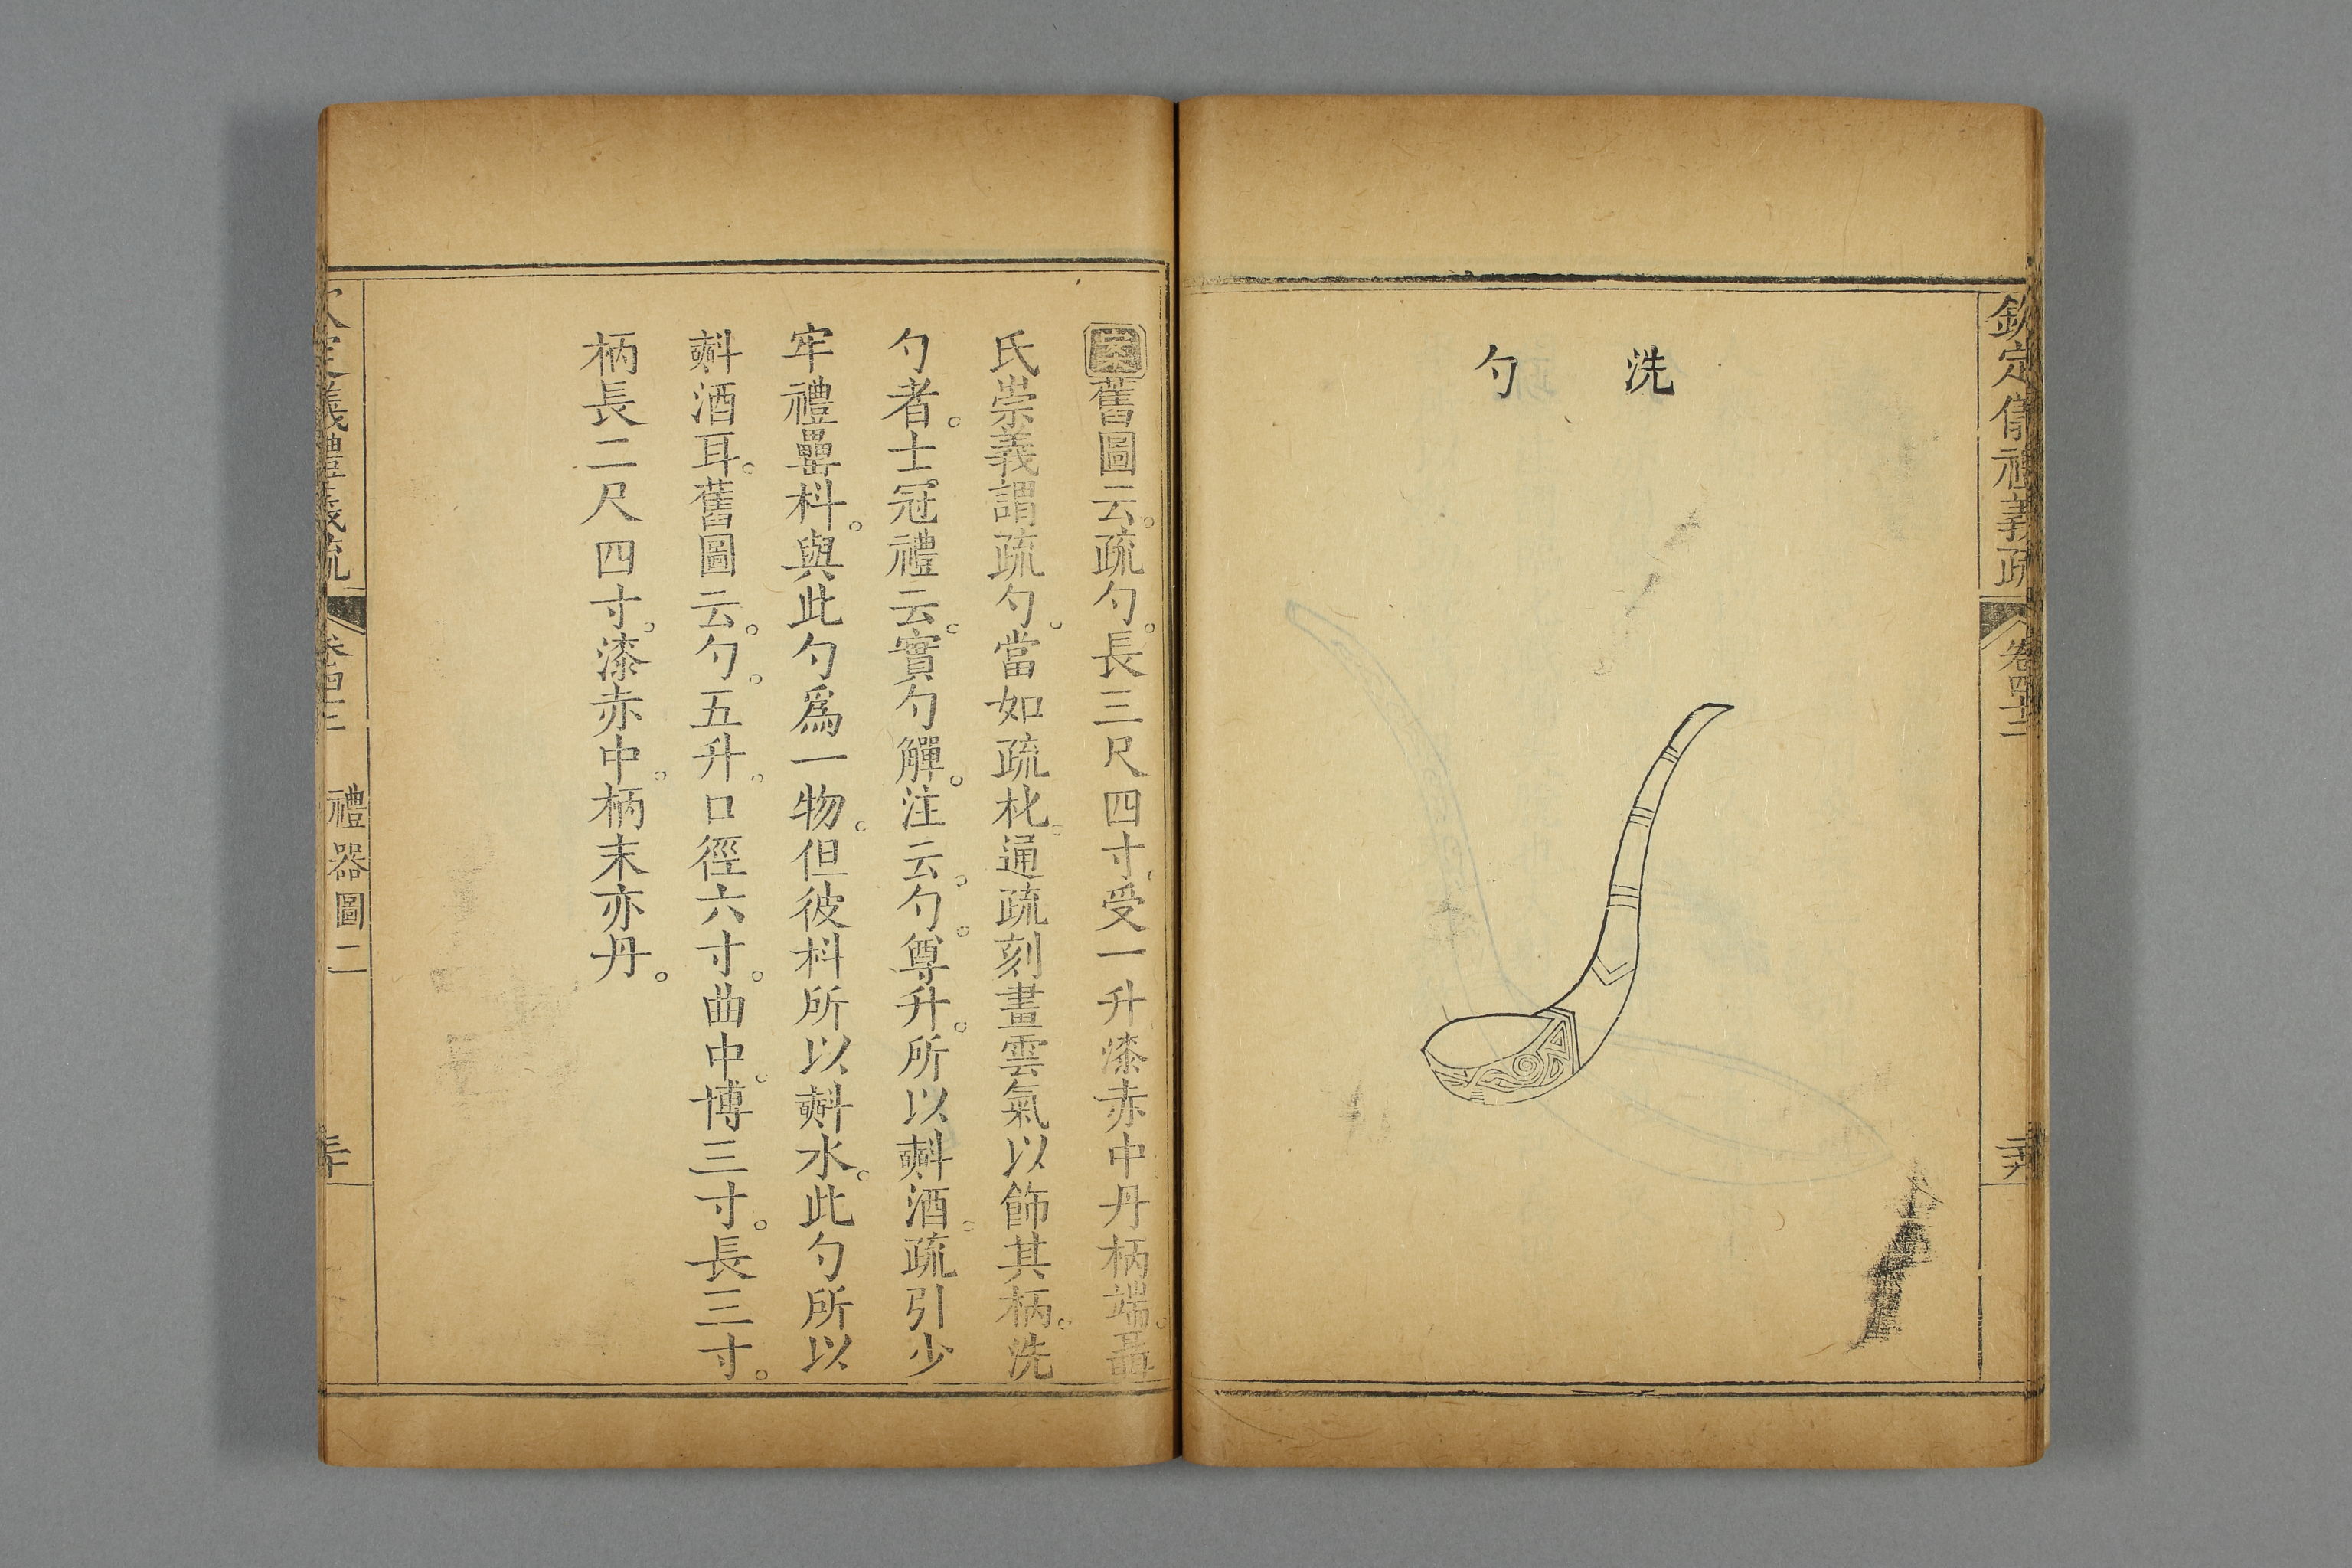 欽定儀禮義疏 卷四十三
洗勺
案舊圖云。疏勺。長三尺四寸。受一升漆赤中丹柄端。聶
氏崇義謂疏勺。當如疏枇。通疏刻畫雲氣以飾其柄。洗
勺者。士冠禮云。實勺觶。注云。勺。尊升。所以㪺酒。疏引少
牢禮罍枓。與此勺爲一物。但彼枓所以㪺水。此勺所以
㪺酒耳。舊圖云。勺。五升。口徑六寸。曲中。博三寸。長三寸。
柄長二尺四寸。漆赤中。柄末亦丹。
欽定義禮義疏 卷四十三 禮器圖二 三十